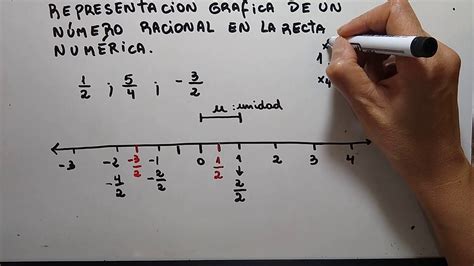 REPRESENTACION GRAFICA DE UN
NÚMERO RACIONAL EN LA RECTA
NUMÉRICA.
1/2 ; 5/4 ; -3/2
u : unidad
-3 -2 -3/2 -1 0 1/2 1 2 3 4
-4/2 -2/2 2/2